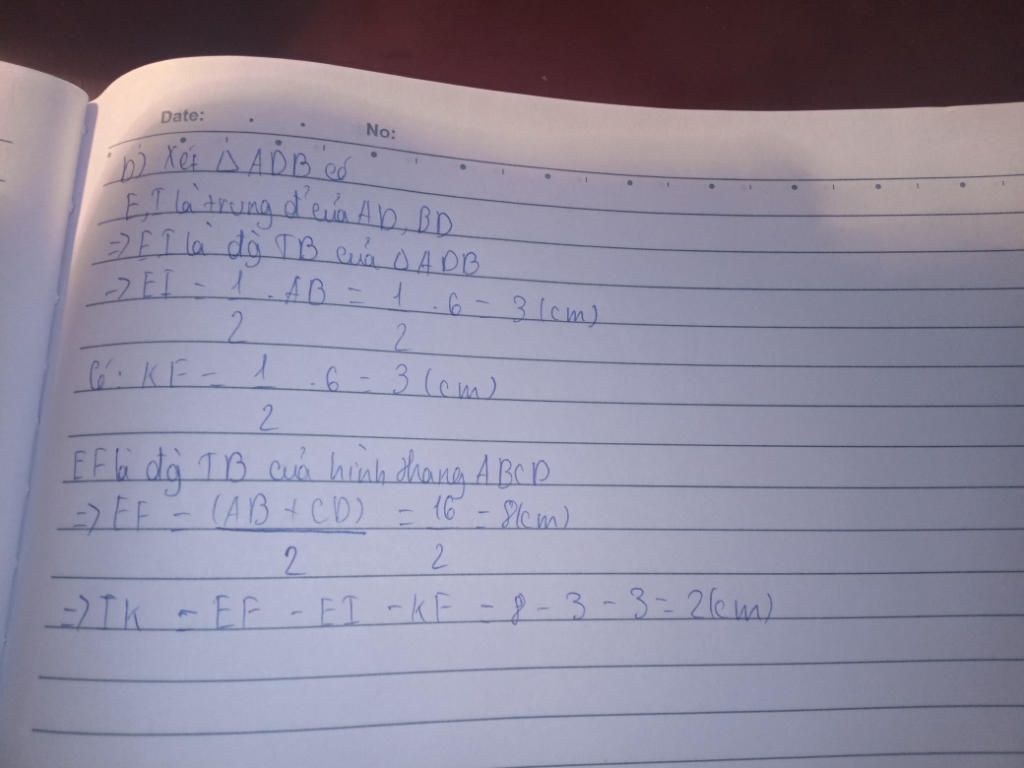 Date:
No:
b) Xét Δ ADB có
E, I là trung đ' của AD, BD
=> EI là đg TB của Δ ADB
=> EI = 1/2 . AB = 1/2 . 6 = 3 (cm)
Có: KF = 1/2 . 6 = 3 (cm)
EF là đg TB của hình thang ABCD
=> EF = (AB + CD)/2 = 16/2 = 8(cm)
=> IK = EF - EI - KF = 8 - 3 - 3 = 2(cm)